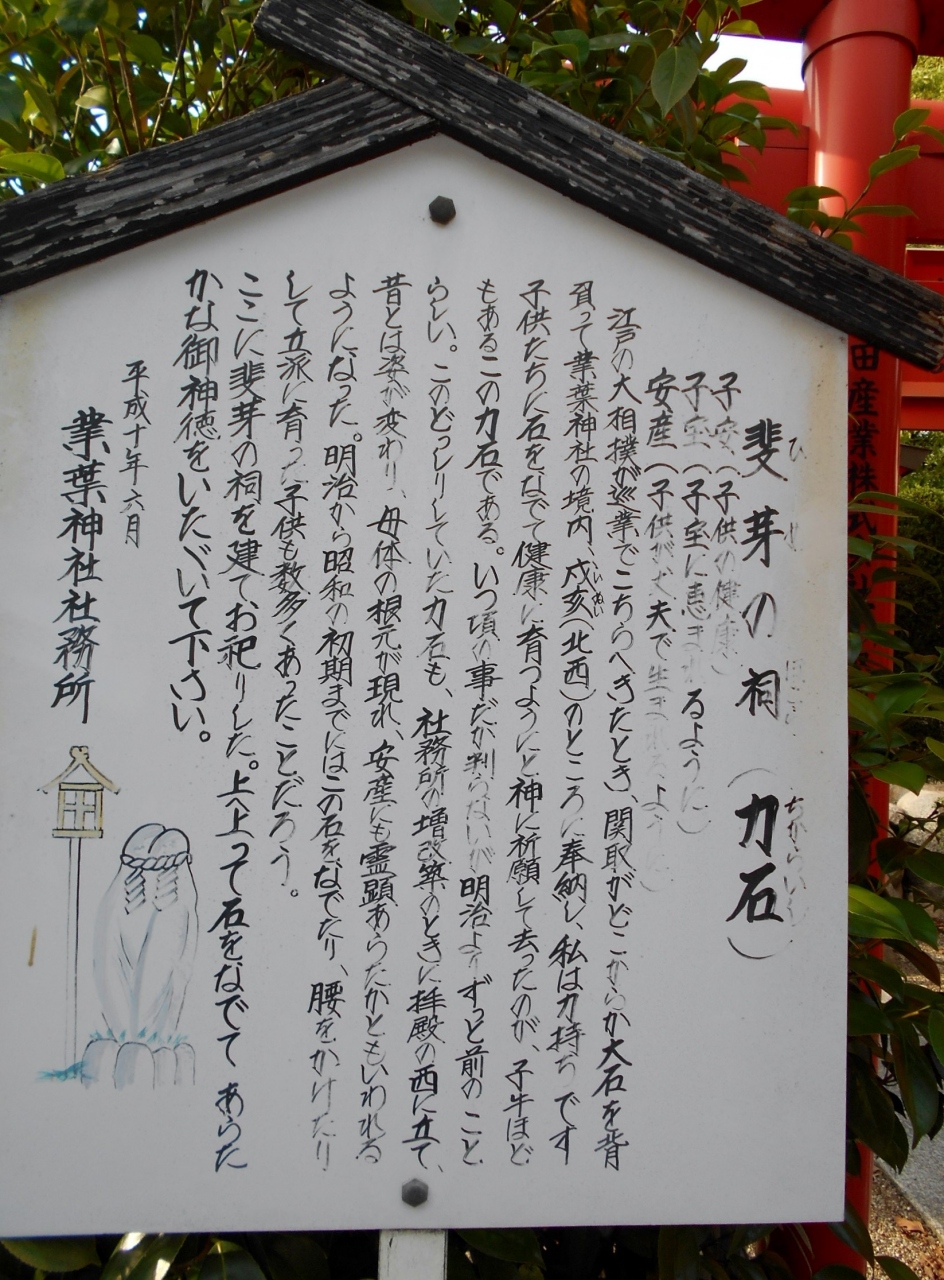 斐芽の祠(力石)
ひ
ちからいし
子安(子供の健康)
子宝(子宝に恵まれるように)
安産(子供が丈夫で生まれるように)
江戸の大相撲が巡業でこちらへきたとき、関取がどこからか大石を背
負って業葉神社の境内、戌亥(北西)のところに奉納し、私は力持ちです
いぬい
子供たちに石をなでて健康に育つようにと神に祈願して去ったのが、子牛ほど
もあるこの力石である。いつ頃の事だか判らないが明治よりずっと前のこと
らしい。このどっしりしていた力石も、社務所の増改築のときに拝殿の西に立て、
昔とは姿が変わり、母体の根元が現れ、安産にも霊顕あらたかともいわれる
ようになった。明治から昭和の初期までにはこの石をなでたり、腰をかけたり
して立派に育った子供も数多くあったことだろう。
ここに斐芽の祠を建てお祀りした。上へ上って石をなでて あらた
かな御神徳をいたゞいて下さい。
平成十年六月
業葉神社社務所
田産業株式